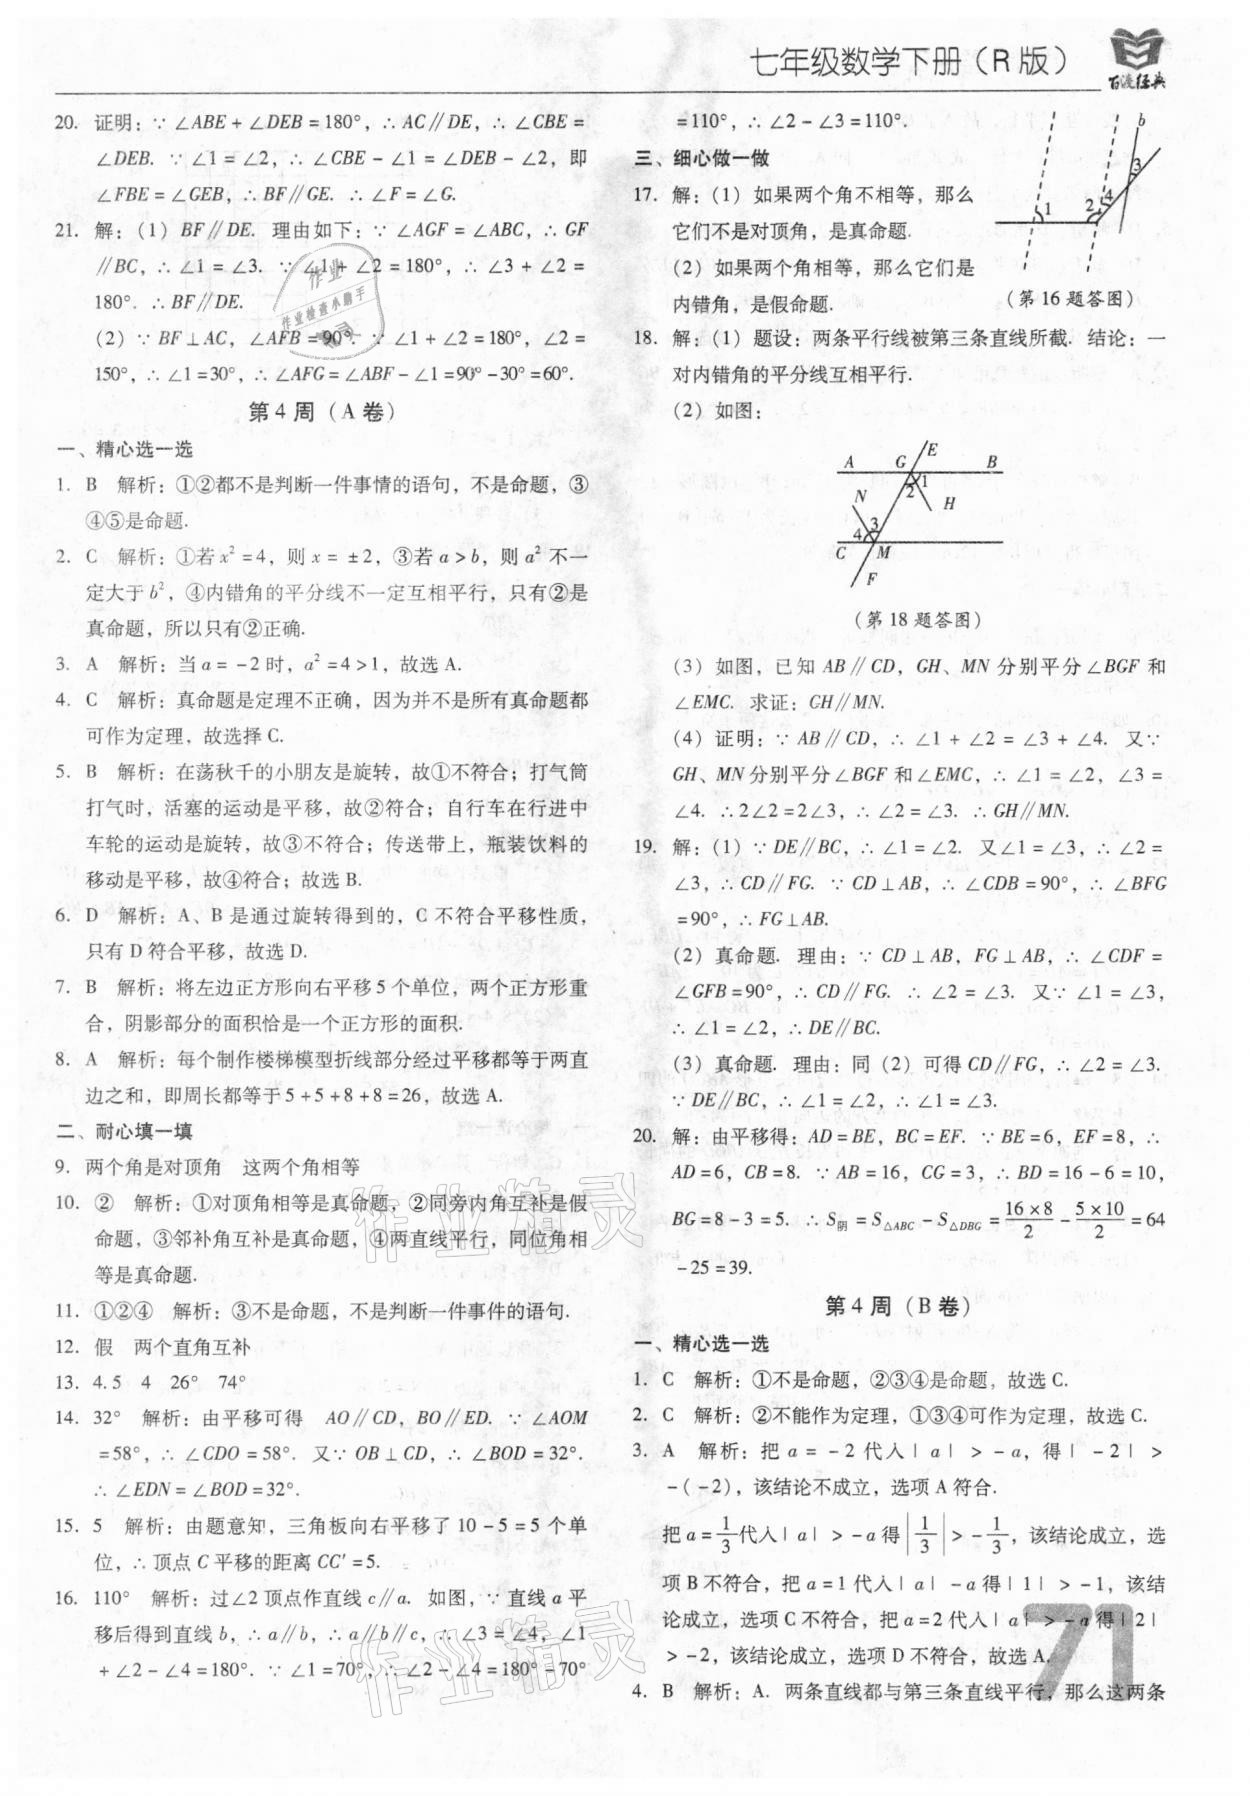 七年级数学下册（R版）
百渡经典
20. 证明：∵∠ABE+∠DEB=180°，∴AC∥DE，∴∠CBE=
∠DEB. ∵∠1=∠2，∴∠CBE-∠1=∠DEB-∠2，即
∠FBE=∠GEB，∴BF∥GE. ∴∠F=∠G.
21. 解：（1）BF∥DE. 理由如下：∵∠AGF=∠ABC，∴GF
∥BC，∴∠1=∠3. ∵∠1+∠2=180°，∴∠3+∠2=
180°. ∴BF∥DE.
（2）∵BF⊥AC，∠AFB=90°. ∵∠1+∠2=180°，∠2=
150°，∴∠1=30°，∴∠AFG=∠ABF-∠1=90°-30°=60°.
第4周（A卷）
一、精心选一选
1. B 解析：①②都不是判断一件事情的语句，不是命题，③
④⑤是命题.
2. C 解析：①若x²=4，则x=±2，③若a>b，则a²不一
定大于b²，④内错角的平分线不一定互相平行，只有②是
真命题，所以只有②正确.
3. A 解析：当a=-2时，a²=4>1，故选A.
4. C 解析：真命题是定理不正确，因为并不是所有真命题都
可作为定理，故选择C.
5. B 解析：在荡秋千的小朋友是旋转，故①不符合；打气筒
打气时，活塞的运动是平移，故②符合；自行车在行进中
车轮的运动是旋转，故③不符合；传送带上，瓶装饮料的
移动是平移，故④符合；故选B.
6. D 解析：A、B是通过旋转得到的，C不符合平移性质，
只有D符合平移，故选D.
7. B 解析：将左边正方形向右平移5个单位，两个正方形重
合，阴影部分的面积恰是一个正方形的面积.
8. A 解析：每个制作楼梯模型折线部分经过平移都等于两直
边之和，即周长都等于5+5+8+8=26，故选A.
二、耐心填一填
9. 两个角是对顶角 这两个角相等
10. ② 解析：①对顶角相等是真命题，②同旁内角互补是假
命题，③邻补角互补是真命题，④两直线平行，同位角相
等是真命题.
11. ①②④ 解析：③不是命题，不是判断一件事件的语句.
12. 假 两个直角互补
13. 4.5 4 26° 74°
14. 32° 解析：由平移可得 AO∥CD，BO∥ED. ∵∠AOM
=58°，∴∠CDO=58°. 又∵OB⊥CD，∴∠BOD=32°.
∴∠EDN=∠BOD=32°.
15. 5 解析：由题意知，三角板向右平移了10-5=5个单
位，∴顶点C平移的距离CC′=5.
16. 110° 解析：过∠2顶点作直线c∥a. 如图，∵直线a平
移后得到直线b，∴a∥b，∴a∥b∥c，∴∠3=∠4，∠1
+∠2-∠4=180°. ∵∠1=70°，∴∠2-∠4=180°-70°
=110°，∴∠2-∠3=110°.
三、细心做一做
17. 解：（1）如果两个角不相等，那么
它们不是对顶角，是真命题.
（2）如果两个角相等，那么它们是
内错角，是假命题.
b
1 2 4 3
（第16题答图）
18. 解：（1）题设：两条平行线被第三条直线所截. 结论：一
对内错角的平分线互相平行.
（2）如图：
A G E B
N 2 1 H
4 3
C M
F
（第18题答图）
（3）如图，已知AB∥CD，GH、MN分别平分∠BGF和
∠EMC. 求证：CH∥MN.
（4）证明：∵AB∥CD，∴∠1+∠2=∠3+∠4. 又∵
GH、MN分别平分∠BGF和∠EMC，∴∠1=∠2，∠3=
∠4. ∴2∠2=2∠3，∴∠2=∠3. ∴GH∥MN.
19. 解：（1）∵DE∥BC，∴∠1=∠2. 又∠1=∠3，∴∠2=
∠3，∴CD∥FG. ∵CD⊥AB，∴∠CDB=90°，∴∠BFG
=90°，∴FG⊥AB.
（2）真命题. 理由：∵CD⊥AB，FG⊥AB，∴∠CDF=
∠GFB=90°，∴CD∥FG. ∴∠2=∠3. 又∵∠1=∠3，
∴∠1=∠2，∴DE∥BC.
（3）真命题. 理由：同（2）可得CD∥FG，∴∠2=∠3.
∵DE∥BC，∴∠1=∠2，∴∠1=∠3.
20. 解：由平移得：AD=BE，BC=EF. ∵BE=6，EF=8，∴
AD=6，CB=8. ∵AB=16，CG=3，∴BD=16-6=10，
BG=8-3=5. ∴S阴=S△ABC-S△DBG=16×8/2-5×10/2=64
-25=39.
第4周（B卷）
一、精心选一选
1. C 解析：①不是命题，②③④是命题，故选C.
2. C 解析：②不能作为定理，①③④可作为定理，故选C.
3. A 解析：把a=-2代入|a|>-a，得|-2|>
-(-2)，该结论不成立，选项A符合.
把a=1/3代入|a|>-a得|1/3|>-1/3，该结论成立，选
项B不符合，把a=1代入|a|-a得|1|>-1，该结
论成立，选项C不符合，把a=2代入|a|>-a得|2|
>-2，该结论成立，选项D不符合，故选A.
4. B 解析：A. 两条直线都与第三条直线平行，那么这两条
71
作业
作业检查小助手
精灵
作业精灵
作业精灵